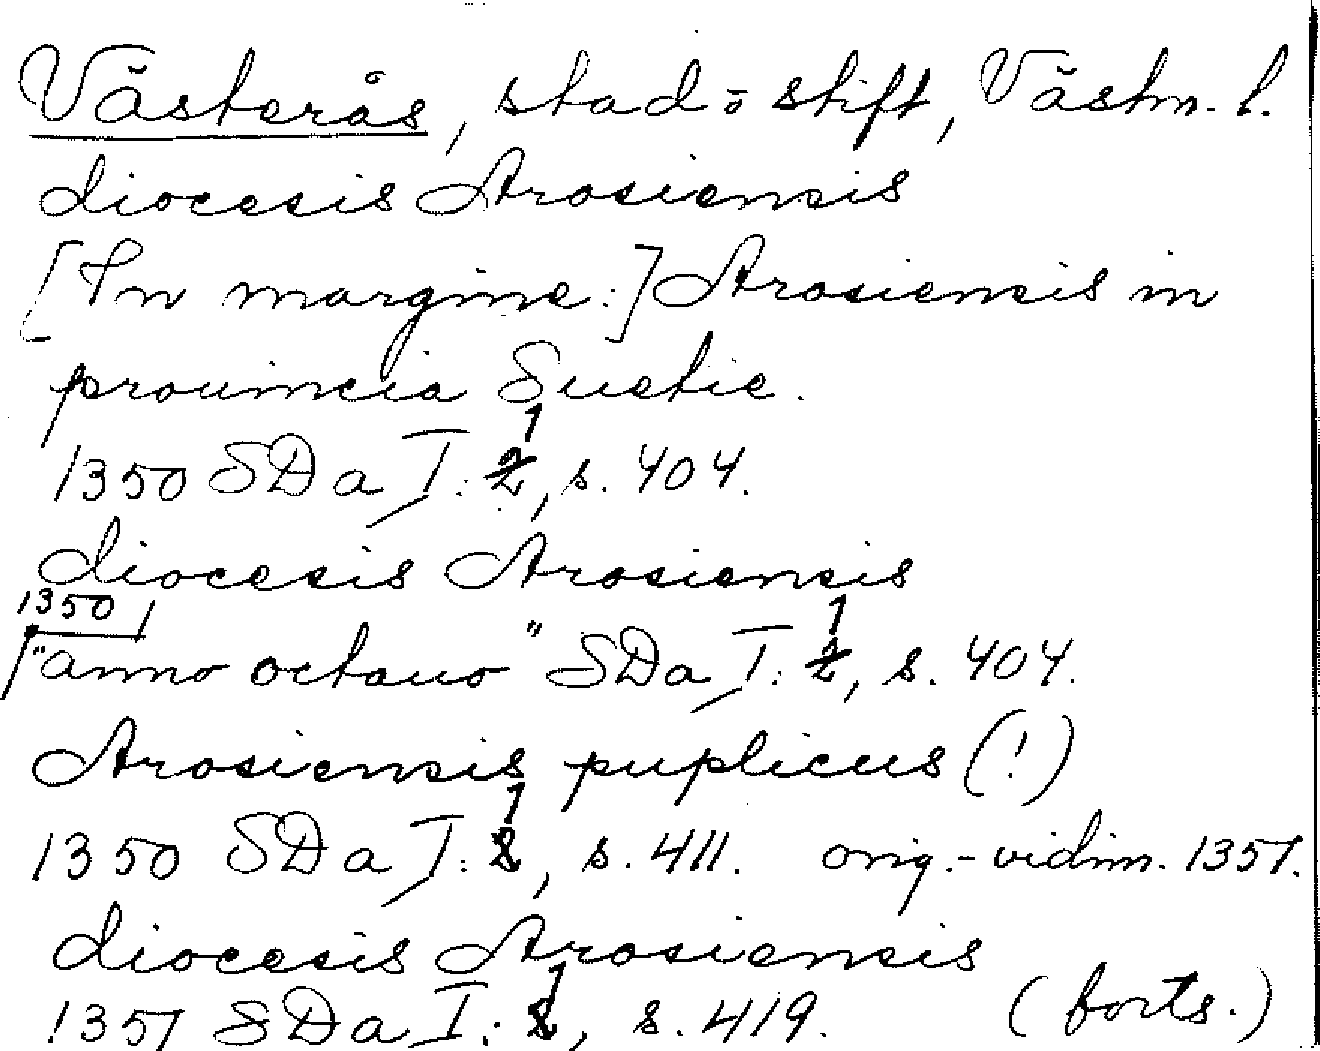 Västerås, stad o stift, Västm. l.
diocesis Arosiensis
[In margine:] Arosiensis in
prouincia Suetie.
1350 SDa I:1, s. 404.
diocesis Arosiensis
1350
"anno octauo" SDa I:1, s. 404.
Arosiensis puplicus (!)
1350 SDa I:1, s. 411. orig.-vidim. 1351.
diocesis Arosiensis
1351 SDa I:1, s. 419. (forts.)